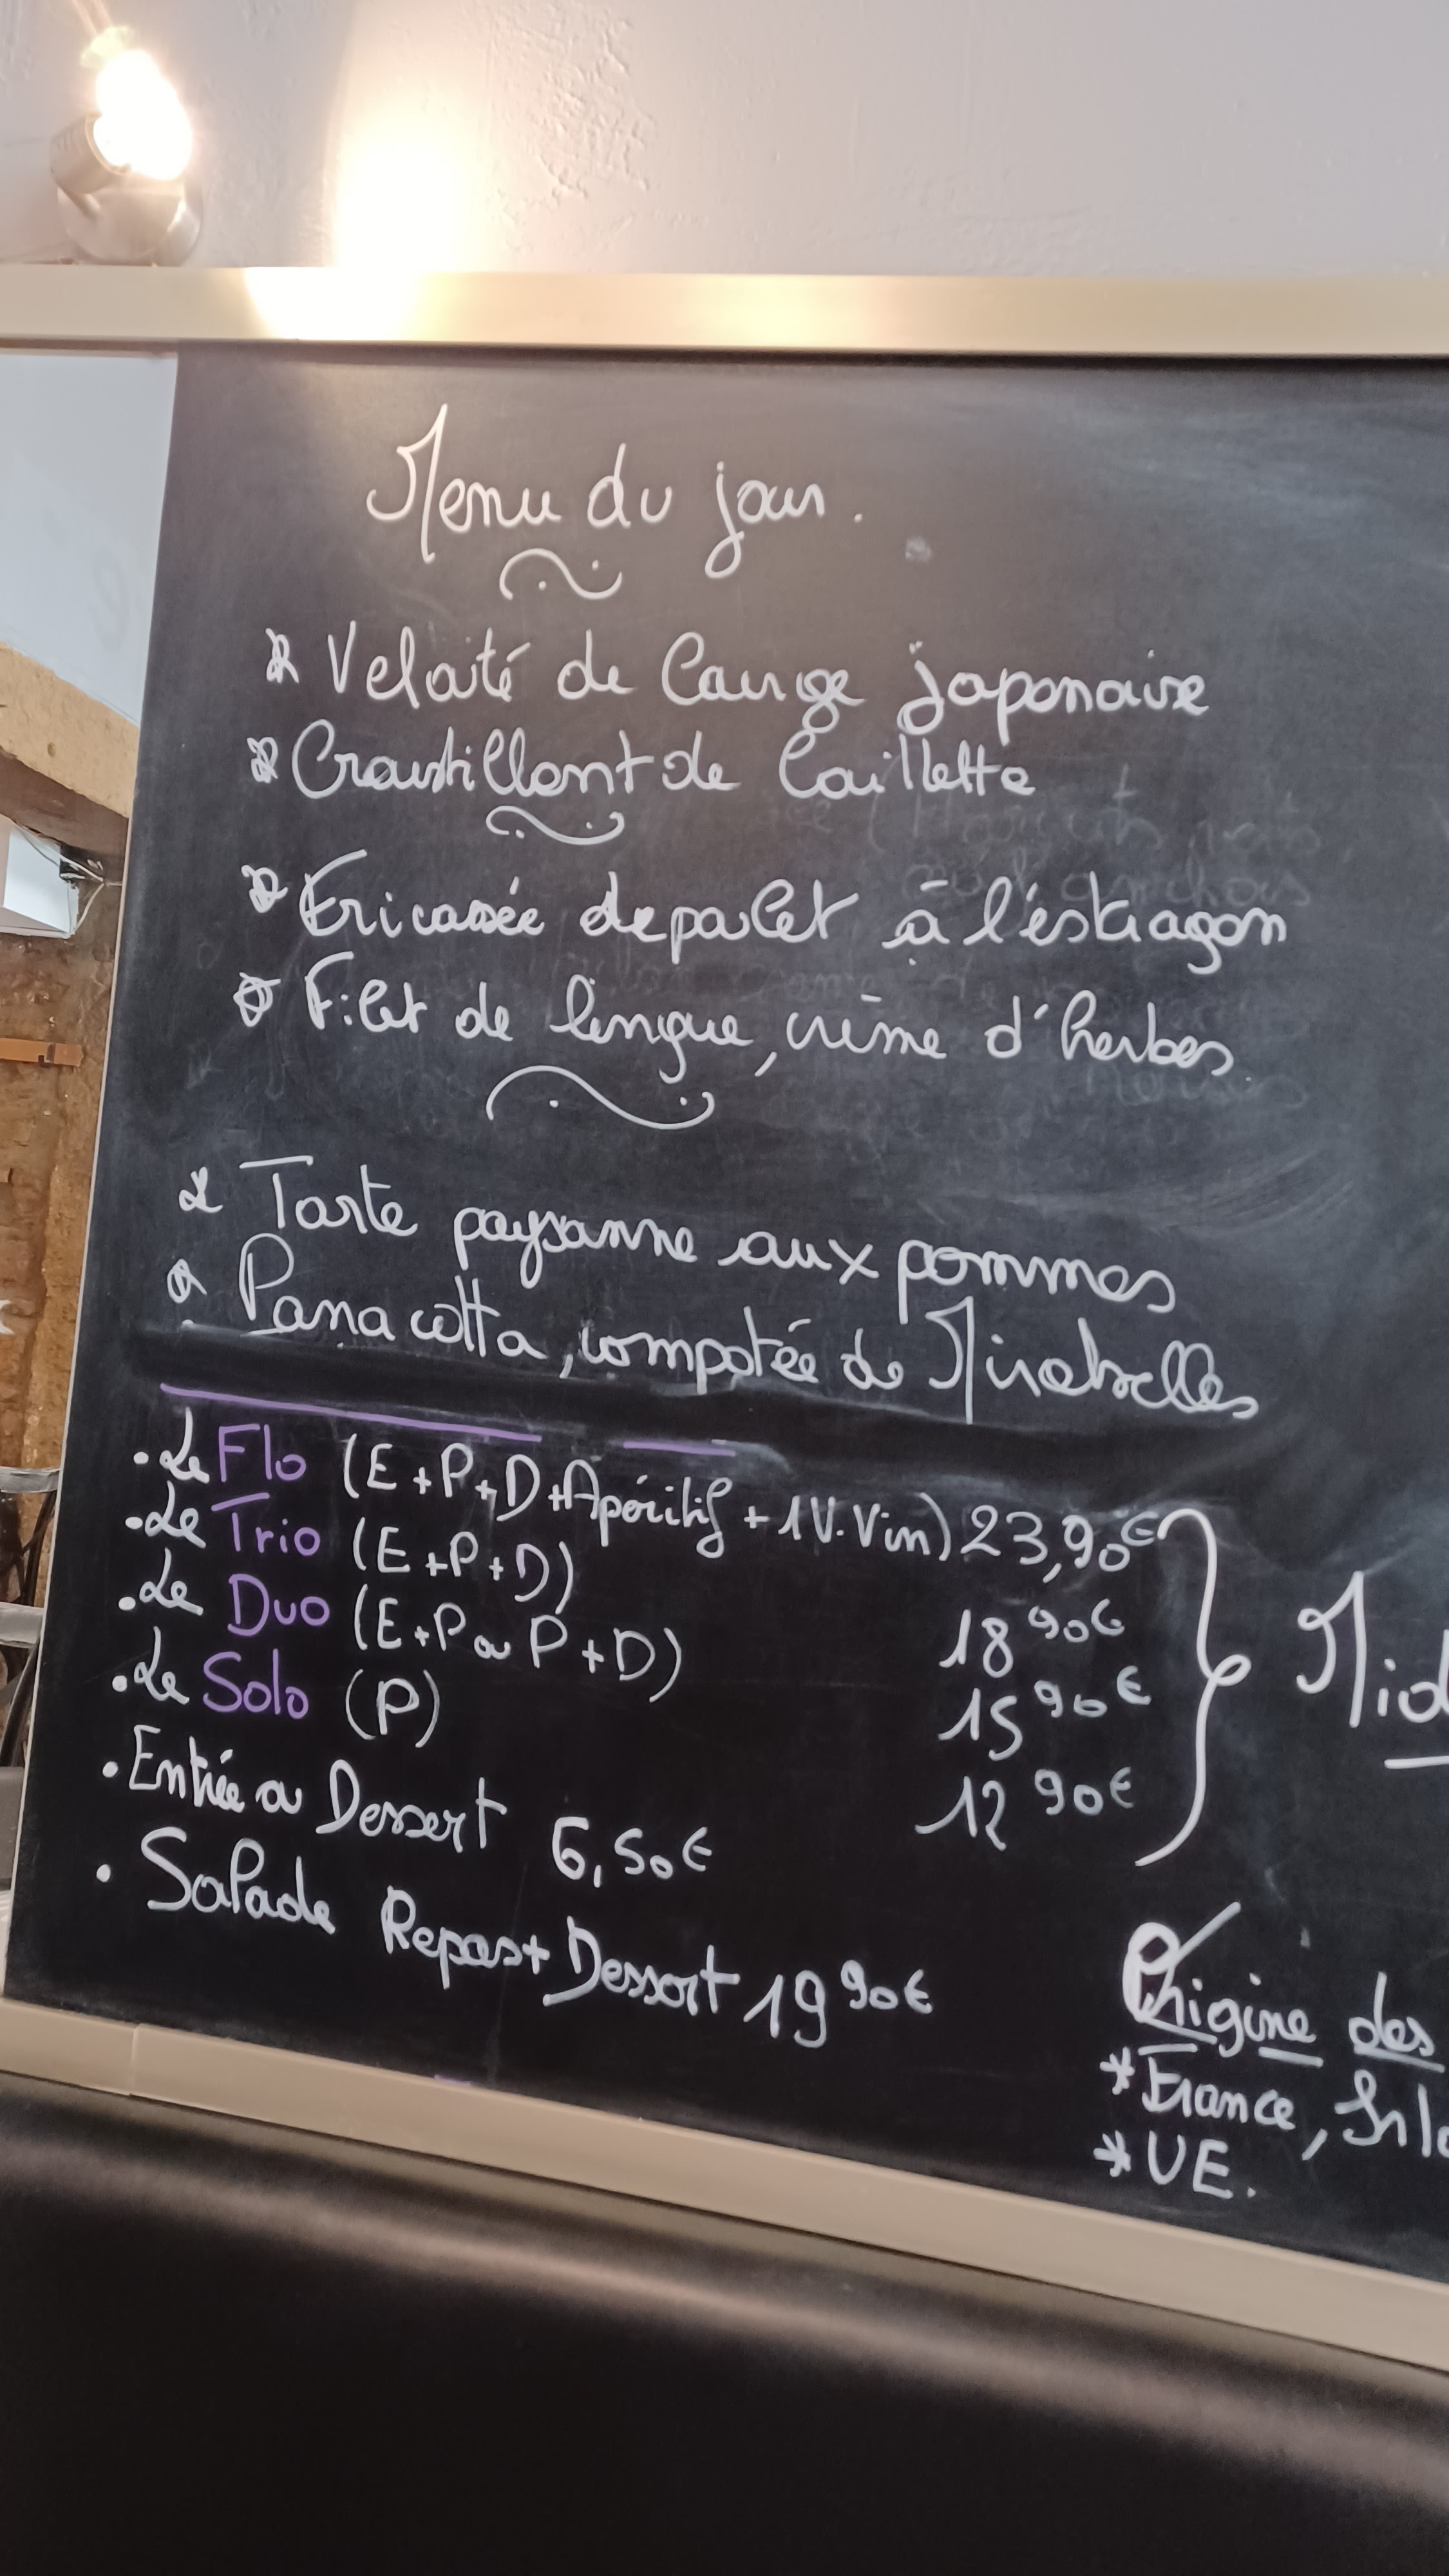 Menu du jour.
* Velouté de Courge japonaise
* Croustillant de Caillette
* Fricassée de poulet à l'éstragon
* Filet de lingue, crème d'herbes
* Tarte paysanne aux pommes
* Panacotta, compotée de Mirabelles
. Le Flo (E+P+D+Apéritif + 1V.Vin) 23,90€
. Le Trio (E+P+D) 18 90€
. Le Duo (E+P ou P+D) 15 90€
. Le Solo (P) 12 90€
. Entrée ou Dessert 6,50€
. Salade Repas + Dessert 19 90€
Origine des
* France,
* UE.